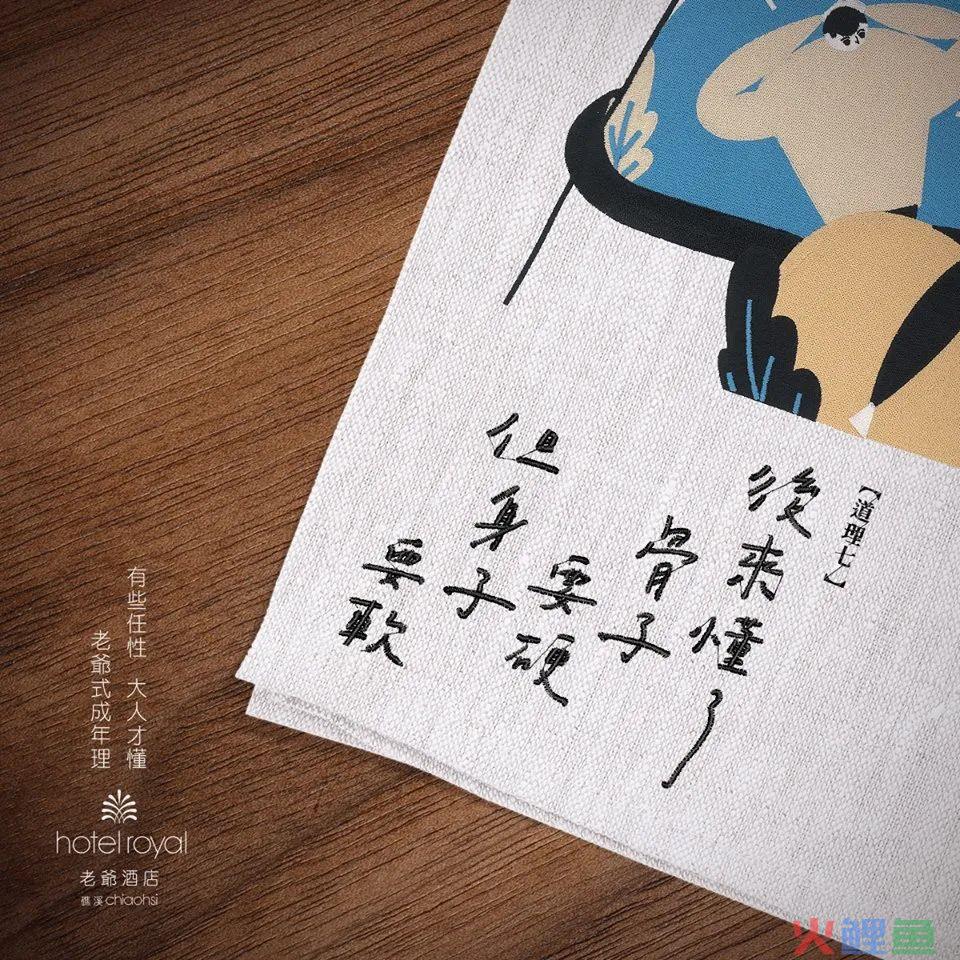 【道理七】
後來懂了
骨子
要硬
但身子
要軟
有些任性 大人才懂
老爺式成年理
hotel royal
老爺酒店
礁溪 chiaohsi
火鲤鱼